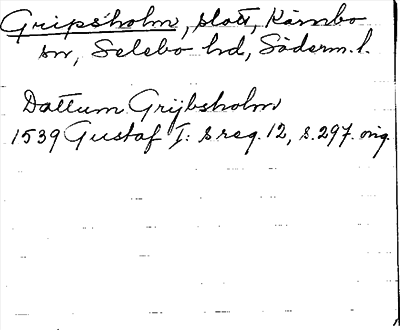 Gripsholm, slott, Kärnbo
sn, Selebo hd, Söderm. l.
Dattum Grijbsholm
1539 Gustaf I: s reg. 12, s. 297. orig.